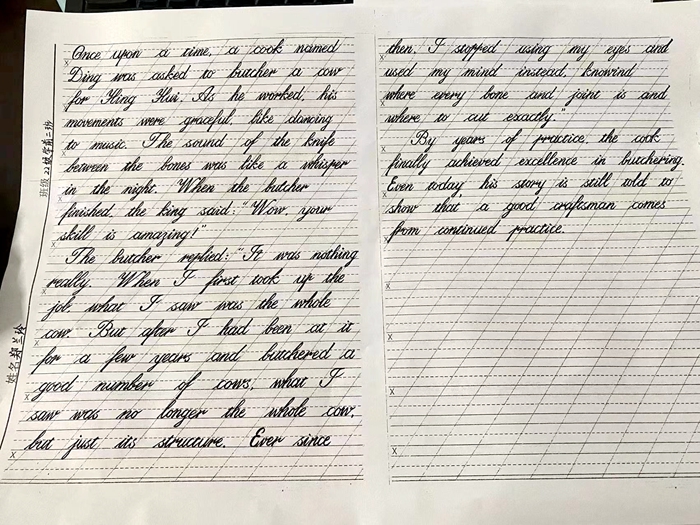 班级 22级学前二班
姓名 郑兰玲
Once upon a time, a cook named
Ding was asked to butcher a cow
for King Hui. As he worked, his
movements were graceful, like dancing
to music. The sound of the knife
between the bones was like a whisper
in the night. When the butcher
finished, the king said: "Wow, your
skill is amazing!"
The butcher replied: "It was nothing
really. When I first took up the
job, what I saw was the whole
cow. But after I had been at it
for a few years and butchered a
good number of cows, what I
saw was no longer the whole cow,
but just its structure. Ever since
then, I stopped using my eyes and
used my mind instead, knowind
where every bone and joint is and
where to cut exactly."
By years of practice, the cook
finally achieved excellence in butchering.
Even today his story is still told to
show that a good craftsman comes
from continued practice.